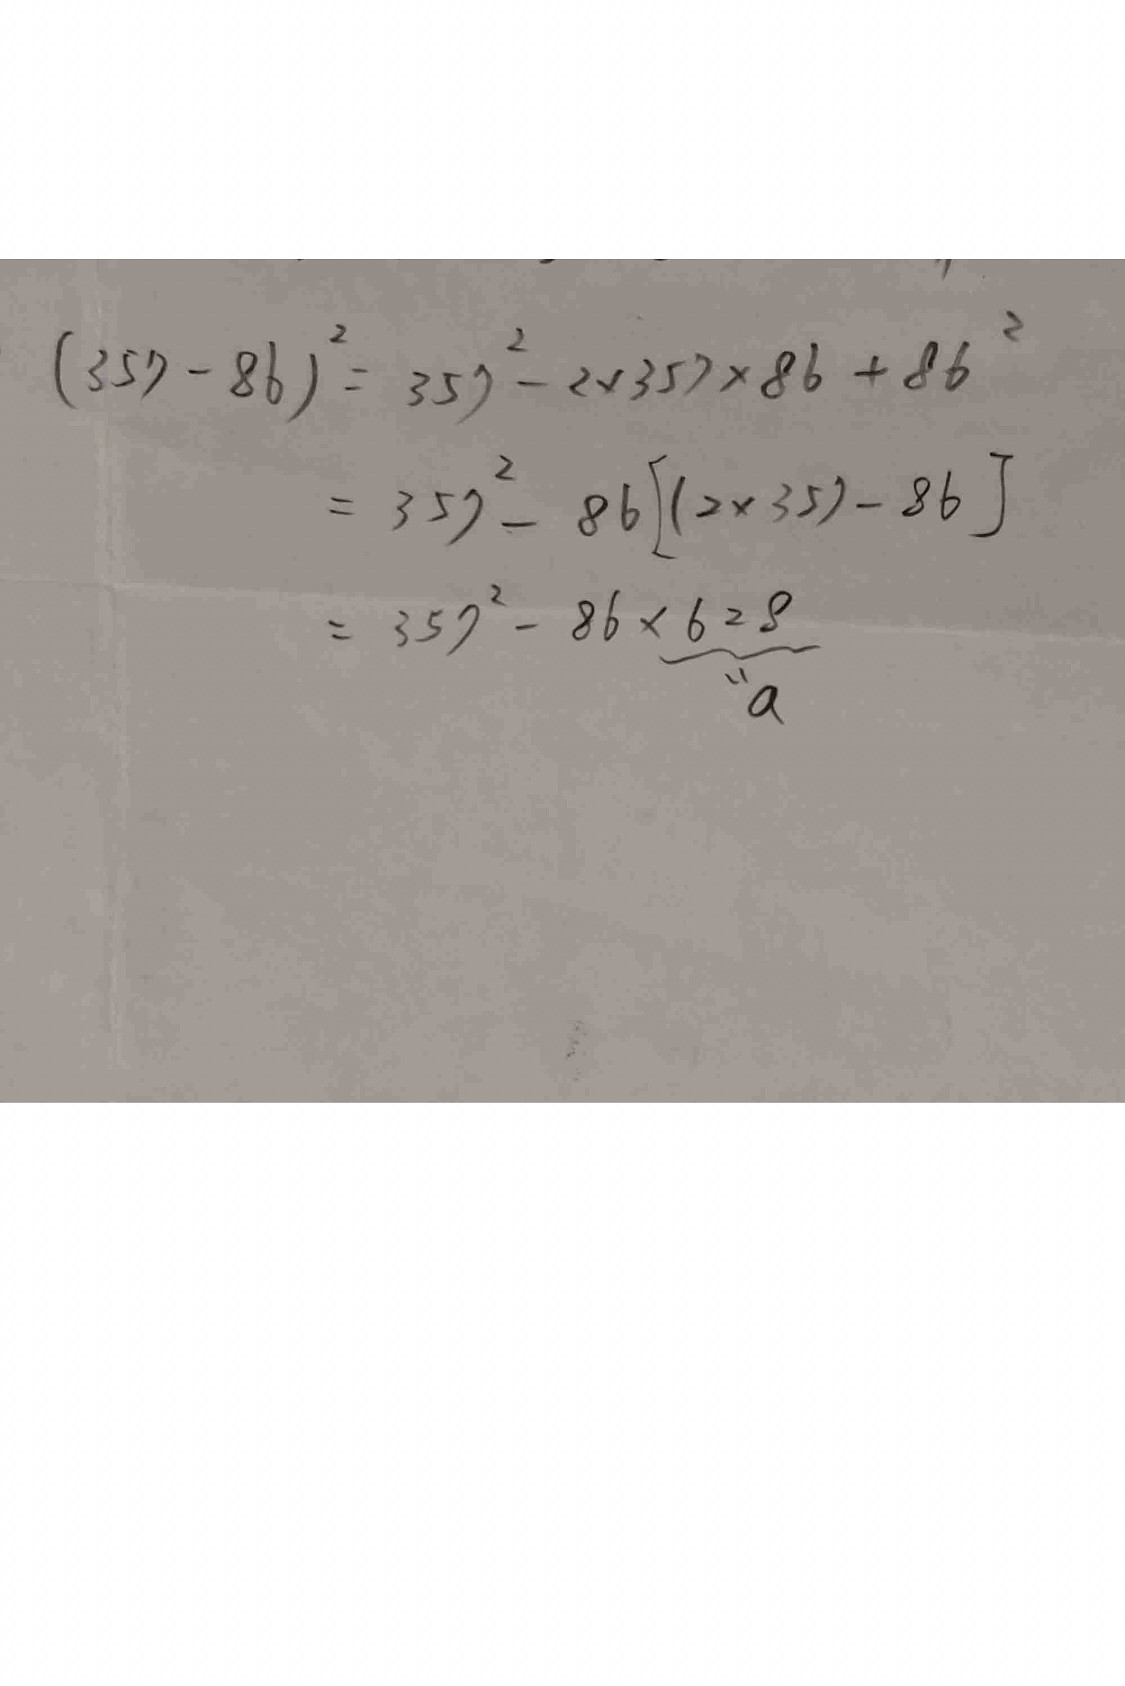 (357 - 86)² = 357² - 2×357×86 + 86²
= 357² - 86[(2×357) - 86]
= 357² - 86 × 628
"
a